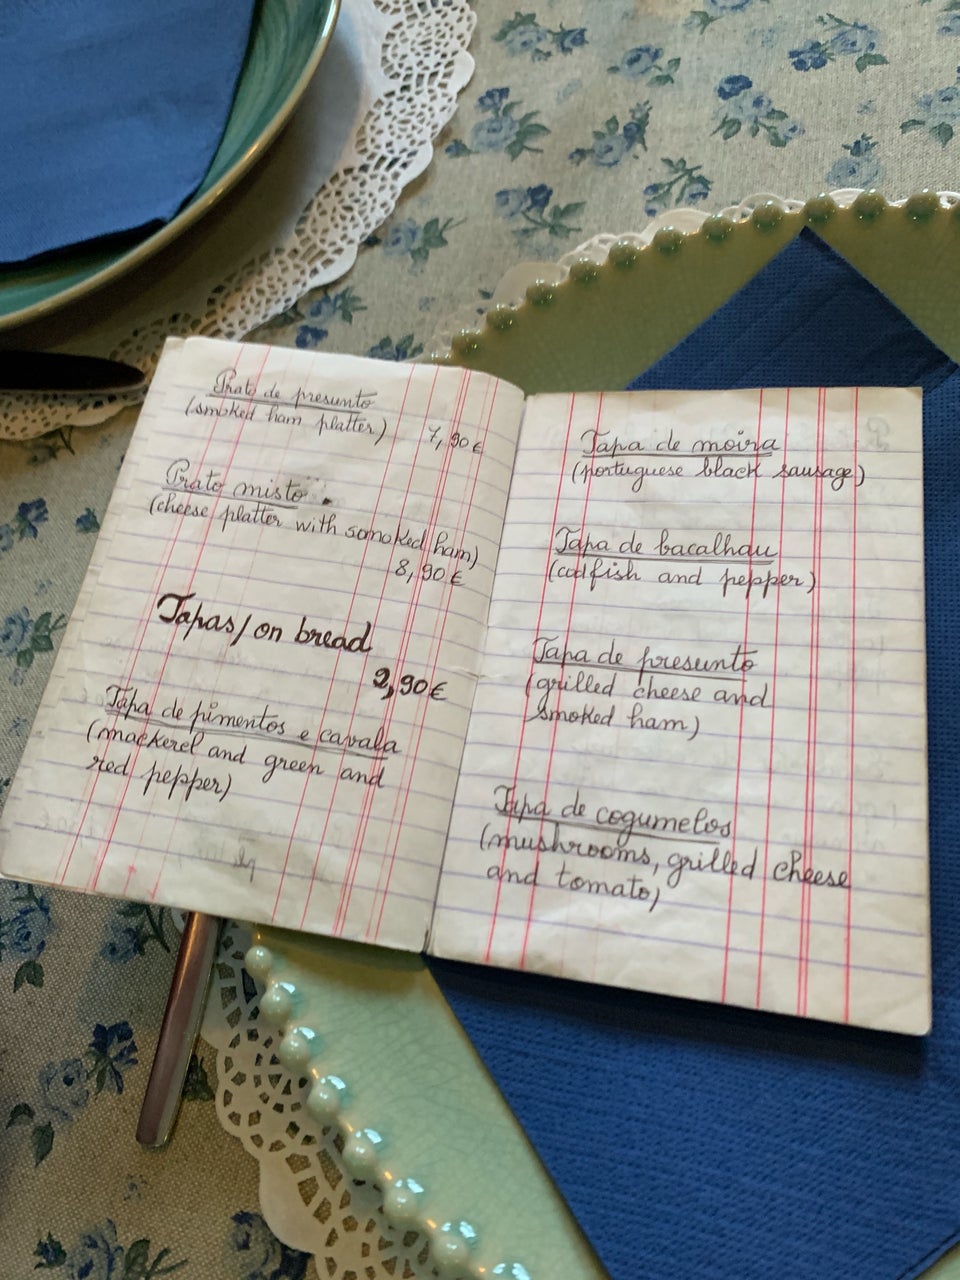 Prato de presunto
(smoked ham platter)
7,90€
Prato misto
(cheese platter with somoked ham)
8,90€
Tapas/on bread
2,90€
Tapa de pimentos e cavala
(mackerel and green and
red pepper)
Tapa de moira
(portuguese black sausage)
Tapa de bacalhau
(codfish and pepper)
Tapa de presunto
(grilled cheese and
smoked ham)
Tapa de cogumelos
(mushrooms, grilled cheese
and tomato)